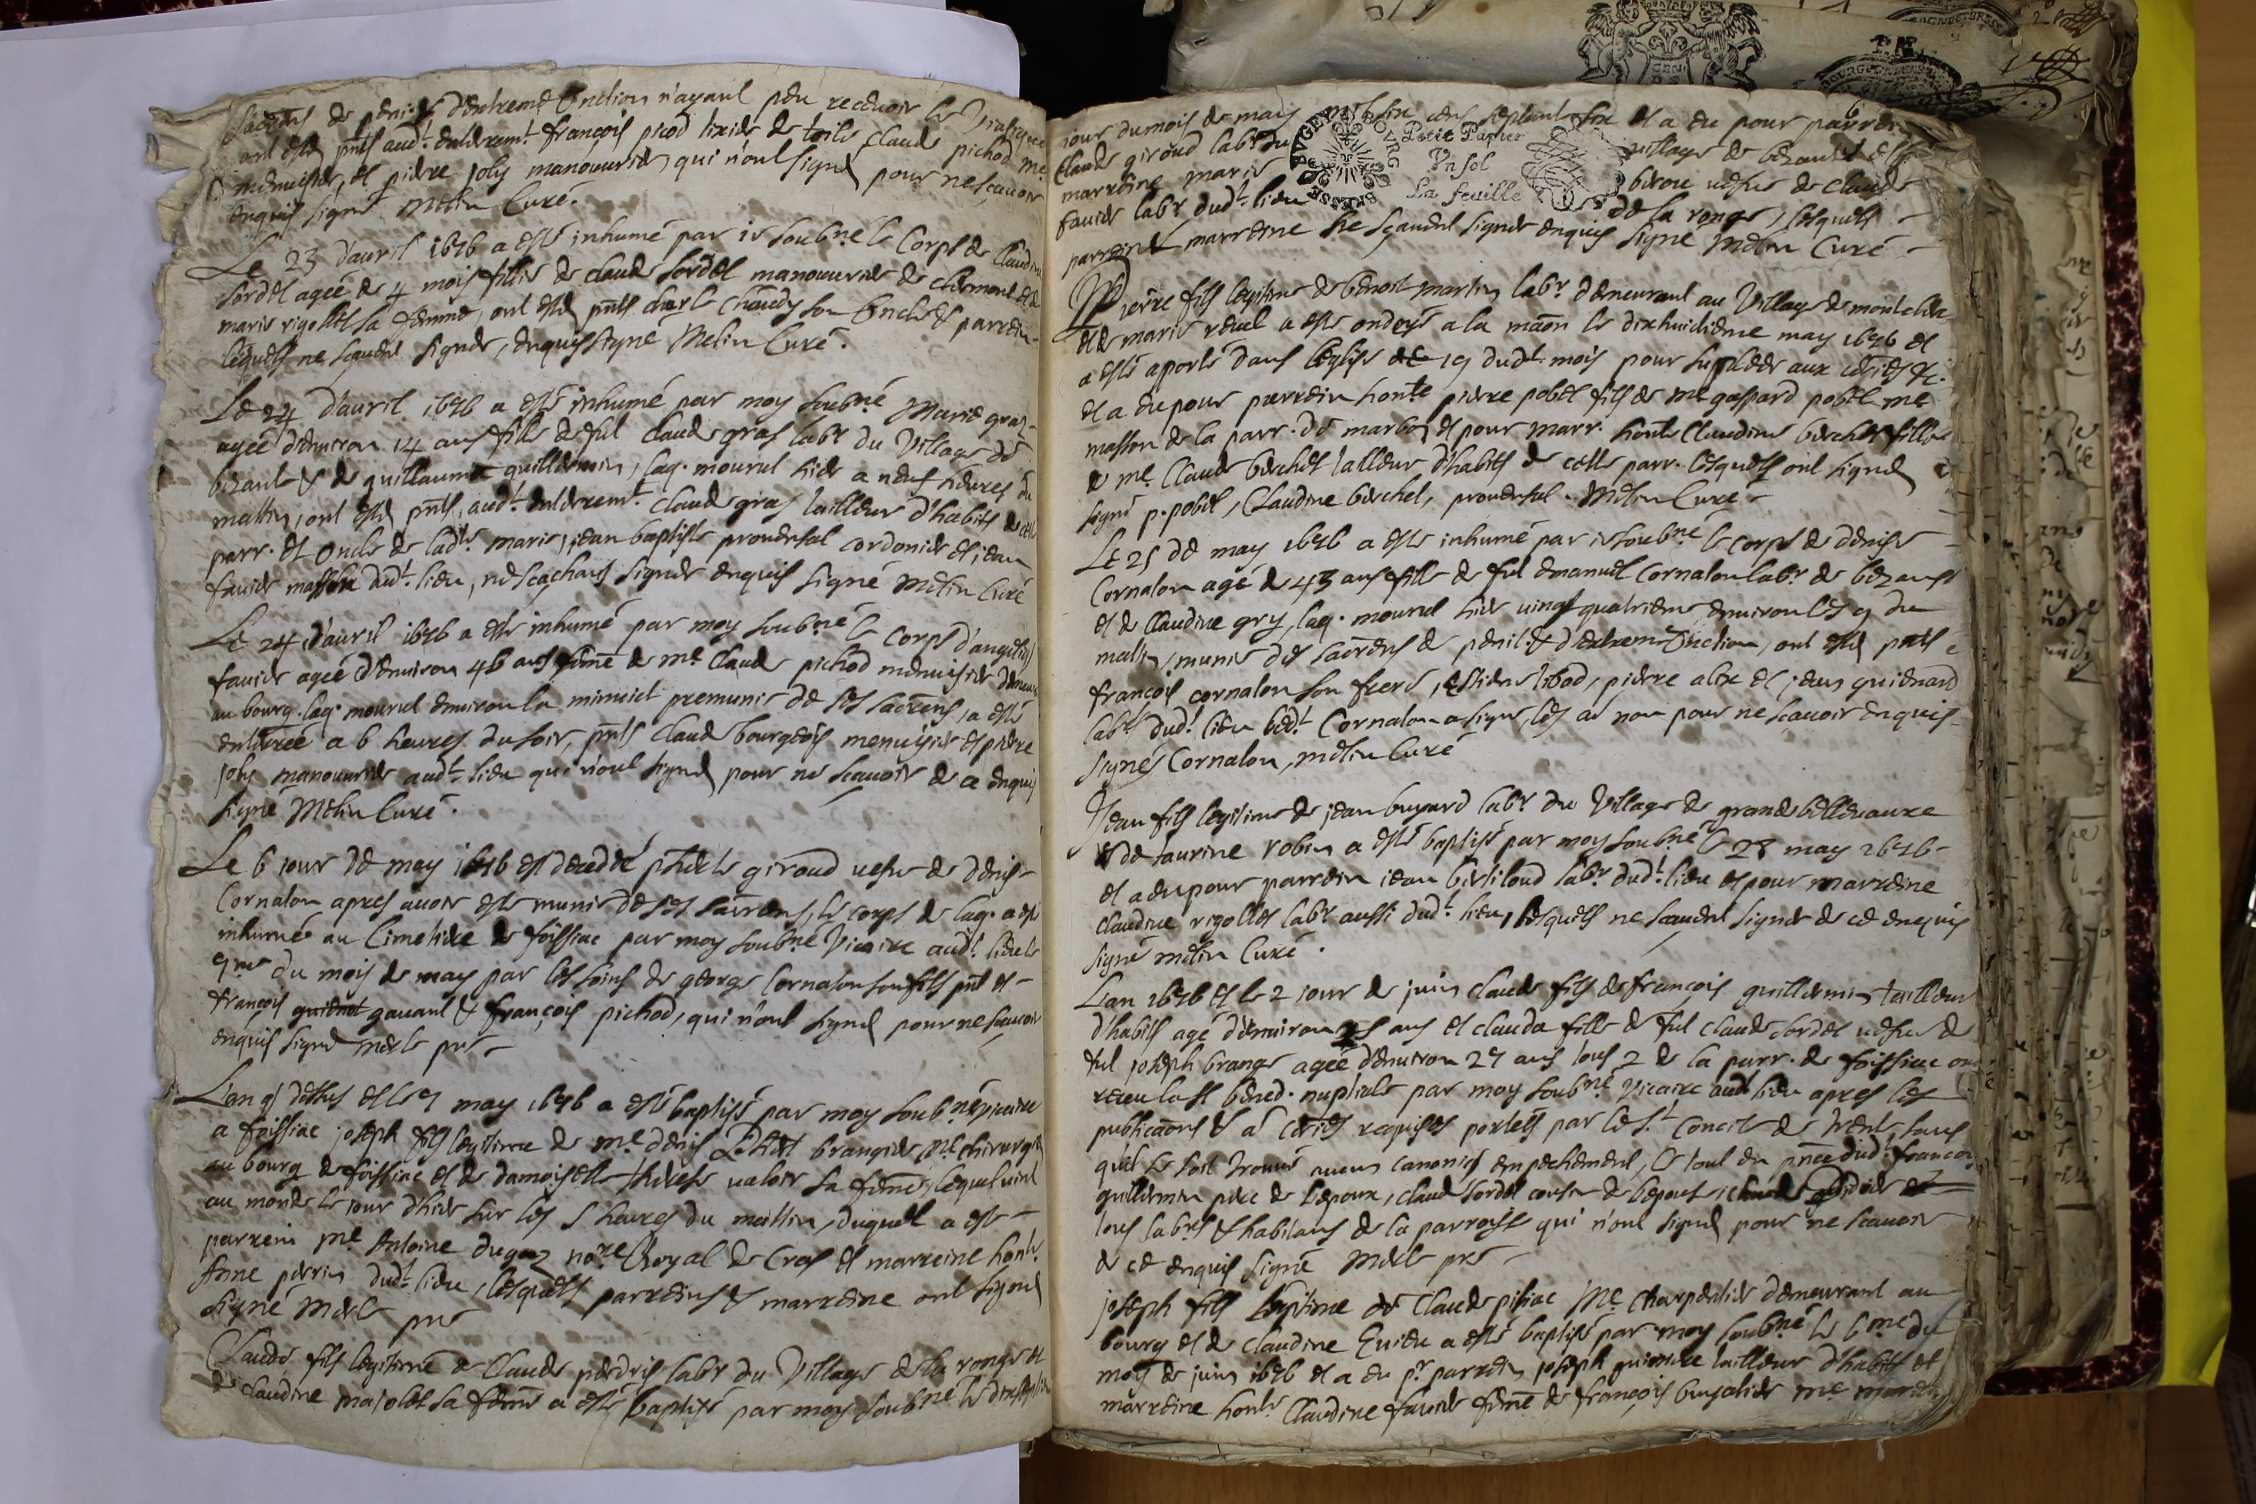 sacrens de penit. & d'extreme Unction n'ayant peu recevoir le Viatique
ont estes pnts audt. enterremt. françois picod tixier de toile Claude pichod me.
menuisier, et pierre joly manouvrier qui n'ont signes pour ne scavoir
enquis signé Melin Curé.
Le 23 d'avril 1676 a esté inhumé par ie soubné le Corps de Claudine
sordet ageé de 4 mois fille de claude sordet manouvrier de et de
marie rigollet sa femme, ont estes pnts Chaudy son Oncle & parrein
lequels ne scauent signer, enquis signé Melin Curé.
Le 24 d'avril 1676 a esté inhumé par moy soubné Marie gras
ageé d'environ 14 ans fille de fut Claude gras labr du Village de
bezant & de guillauma guillermin, laq. mourut hier a neuf heures du
mattin, ont estes pnts, audt. enterremt. Claude gras tailleur d'habits de cette
parr. et Oncle de ladte marie, jean baptiste provensal cordonier et jean
favier masson dudt. lieu, ne scachans signer enquis signé Melin Curé
Le 24 d'avril 1676 a esté inhumé par moy soubné le Corps
favier ageé d'environ 46 ans feme de me. Claude pichod menuisier
au bourg. laq. mourut environ la minuict premunie de ses sacrens, a esté
enterreé a 6 heures du soir, pnts Claude bourgeois menuisier et pierre
joly manouvrier audt. lieu qui n'ont signes pour ne scavoir de ce enquis
signé Melin Curé.
Le 6 iour de may 1676 est decedeé giroud vefve de denis
Cornaton apres avoir esté munie de ses sacrens, le corps de laq. a esté
inhumeé au Cimetiere de foissiac par moy soubné Vicaire audt. lieu le
7me du mois de may par les soins de george Cornaton son fils pnt et
françois gavant & françois pichod, qui n'ont signes pour ne scavoir
enquis signé merle pre
L'an qs dessus et le 7 may 1676 a esté baptisé par moy soubné vicaire
a foissiac joseph fils legitime de me. denis brangier me. chirurgien
au bourg de foissiac et de damoiselle therese valoir sa feme, lequel vint
au monde le iour d'hier sur les 5 heures du mattin, duquel a esté
parrein me. Antoine dugaz nore. Royal de Cras et marreine honte.
Anne perrin dudt. lieu, lesquels parreins & marreine ont signes
signé Merle pre
Claude fils legitime de Claude perdrix labr du Village de la ronge et
de claudine majolet sa feme a esté baptisé par moy soubné le
iour du mois de may mil six cent septante six et a eu pour parrein
Claude giroud labr du village de bezant et
marreine marie vefve de claude
favier labr dudt. lieu de la ronge, lesquels
parrein & marreine ne scauent signer enquis signé Melin Curé
Petit Papier
Un sol
La feuille
Pierre fils legitime de benoit martin labr. demeurant au Village de
et de marie a esté ondoyé a la maon le dixhuictieme may 1676 et
a esté aporté dans l'eglise 19 dudt. mois pour supleer aux ceries &c.
et a eu pour parrein honte pierre pobel fils de me gaspard pobel me
masson de la parr. de marbos et pour marr. honte Claudine berchet fille
de me. Claude berchet tailleur d'habits de cette parr. lesquels ont signes
signé p. pobel, Claudine berchet, provensal. Melin Curé
Le 25 de may 1676 a esté inhumé par ie soubné le corps de denise
Cornaton agé de 43 ans fille de fut emanuel Cornaton labr. de bezant
et de Claudine gry, laq. mourut hier vingt quatrieme environ les 9 du
matin, munie des sacrens de penit. & d'extreme Unction, ont estes pnts
françois cornaton son frere, estiene libod, pierre alix et jean guienard
labrs dudt. lieu ledt. Cornaton a signé, les au non pour ne scavoir enquis
signés Cornaton, Melin Curé
Jean fils legitime de jean buyard labr du Village de grande villevaure
& de taurine robin a esté baptisé par moy soubné le 28 may 1676
et a eu pour parrein jean bertiloud labr dudt. lieu et pour marreine
Claudine rigollet labr aussi dudt. lieu, lesquels ne scauent signer de ce enquis
signé melin Curé.
L'an 1676 et le 2 iour de juin claude fils de françois guillermin tailleur
d'habits agé d'environ 25 ans et clauda fille de fut claude sordet vefve de
fut joseph brange ageé d'environ 27 ans tous 2 de la parr. de foissiac ont
receu la st bened. nuptiale par moy soubné vicaire audt lieu apres les
publicaons & aes ceries requises portees par le st. Concile de trent, sans
quil se soit trouvé aucun canonicq empechement, le tout en pnce dudt. françois
guillermin pere de l'epoux, claude sordet cousin de l'epouse,
tous labrs & habitans de la parroisse qui n'ont signes pour ne scavoir
de ce enquis signé Merle pre
joseph fils legitime de Claude pisiac me. Charpentier demeurant au
bourg et de claudine Evieu a esté baptisé par moy soubné le 6me du
mois de juin 1676 et a eu pr. parrein joseph tailleur d'habits et
marreine honte Claudine favier feme de françois buyatier me